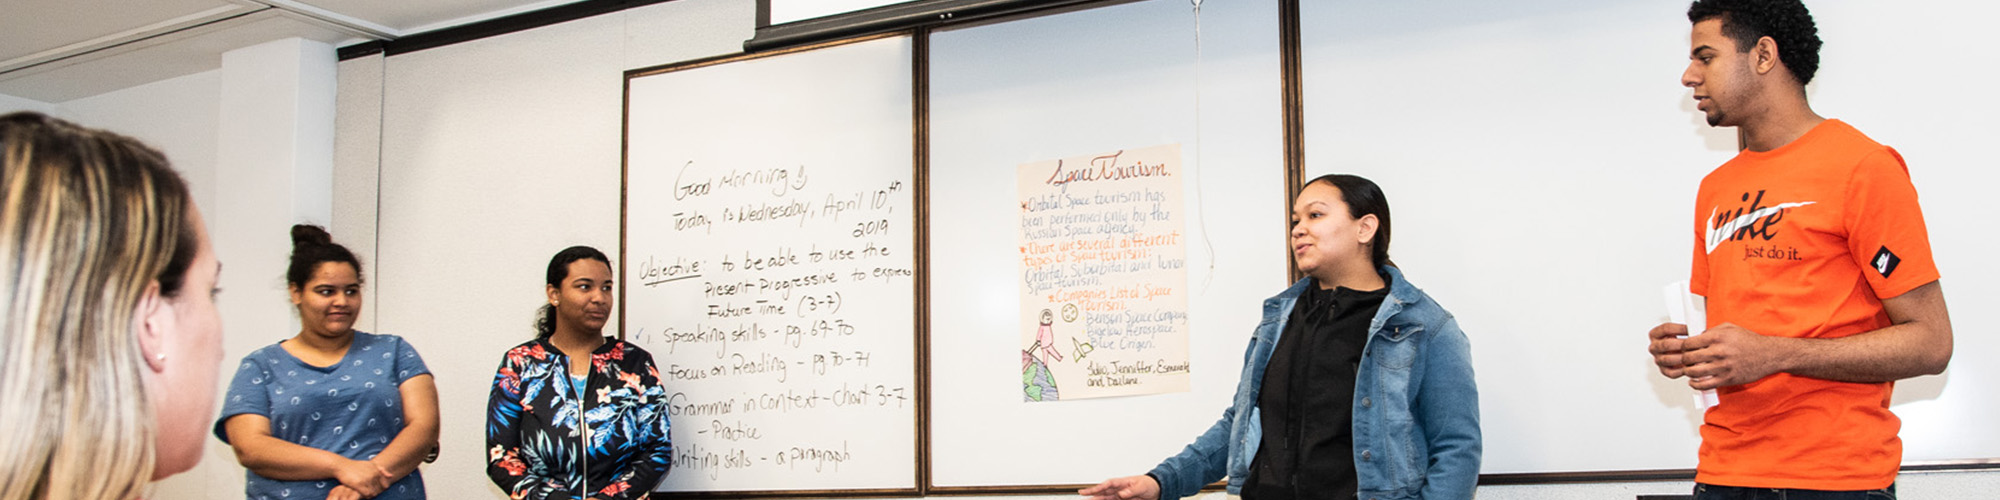 Good Morning
Today is Wednesday, April 10th,
2019
Objective: to be able to use the
Present Progressive to express
Future Time (3-7)
✓ 1. Speaking skills - pg. 69-70
Focus on Reading - pg 70-71
Grammar in Context - chart 3-7
- Practice
Writing skills - a paragraph
Space Tourism.
* Orbital Space tourism has
been performed only by the
Russian Space agency.
* There are several different
types of space tourism:
Orbital, Suborbital and lunar
Space tourism.
* Companies List of Space
Tourism.
Benson Space Company
Bigelow Aerospace.
Blue Origin.
Julio, Jenniffer,
and Dailene.
nike
just do it.